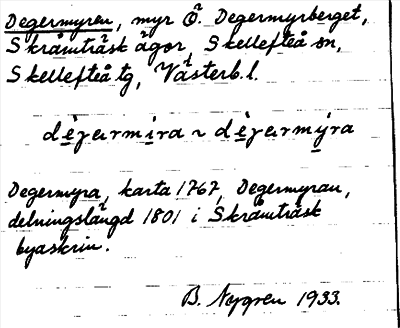 Degermyren, myr Ö. Degermyrberget,
Skråmträsk ägor, Skellefteå sn,
Skellefteå tg, Västerb. l.
dègǝrmira ~ dègǝrmyra
Degermyra, karta 1767, Degermyran,
delningslängd 1801 i Skråmträsk
byaskrin.
B. Nygren 1933.